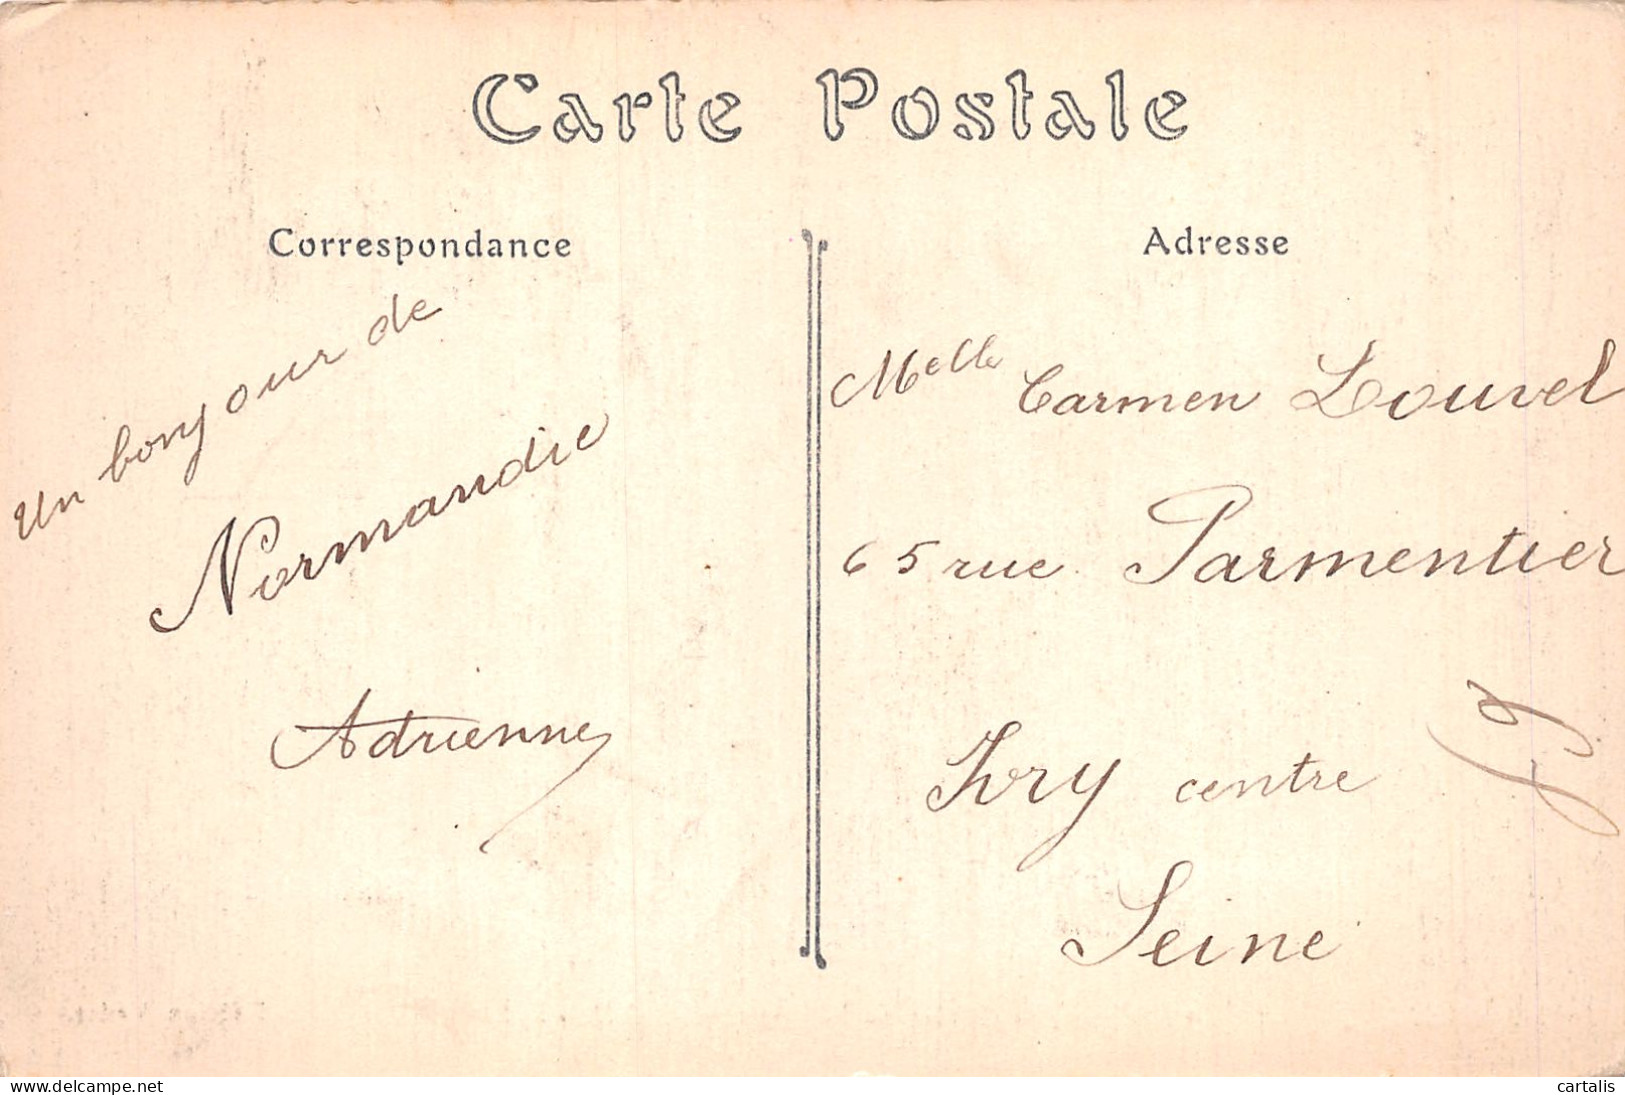 Carte Postale
Correspondance
Un bonjour de
Normandie
Adrienne
Adresse
Melle Carmen Louvel
65 rue Parmentier
Ivry centre
Seine
www.delcampe.net
cartalis